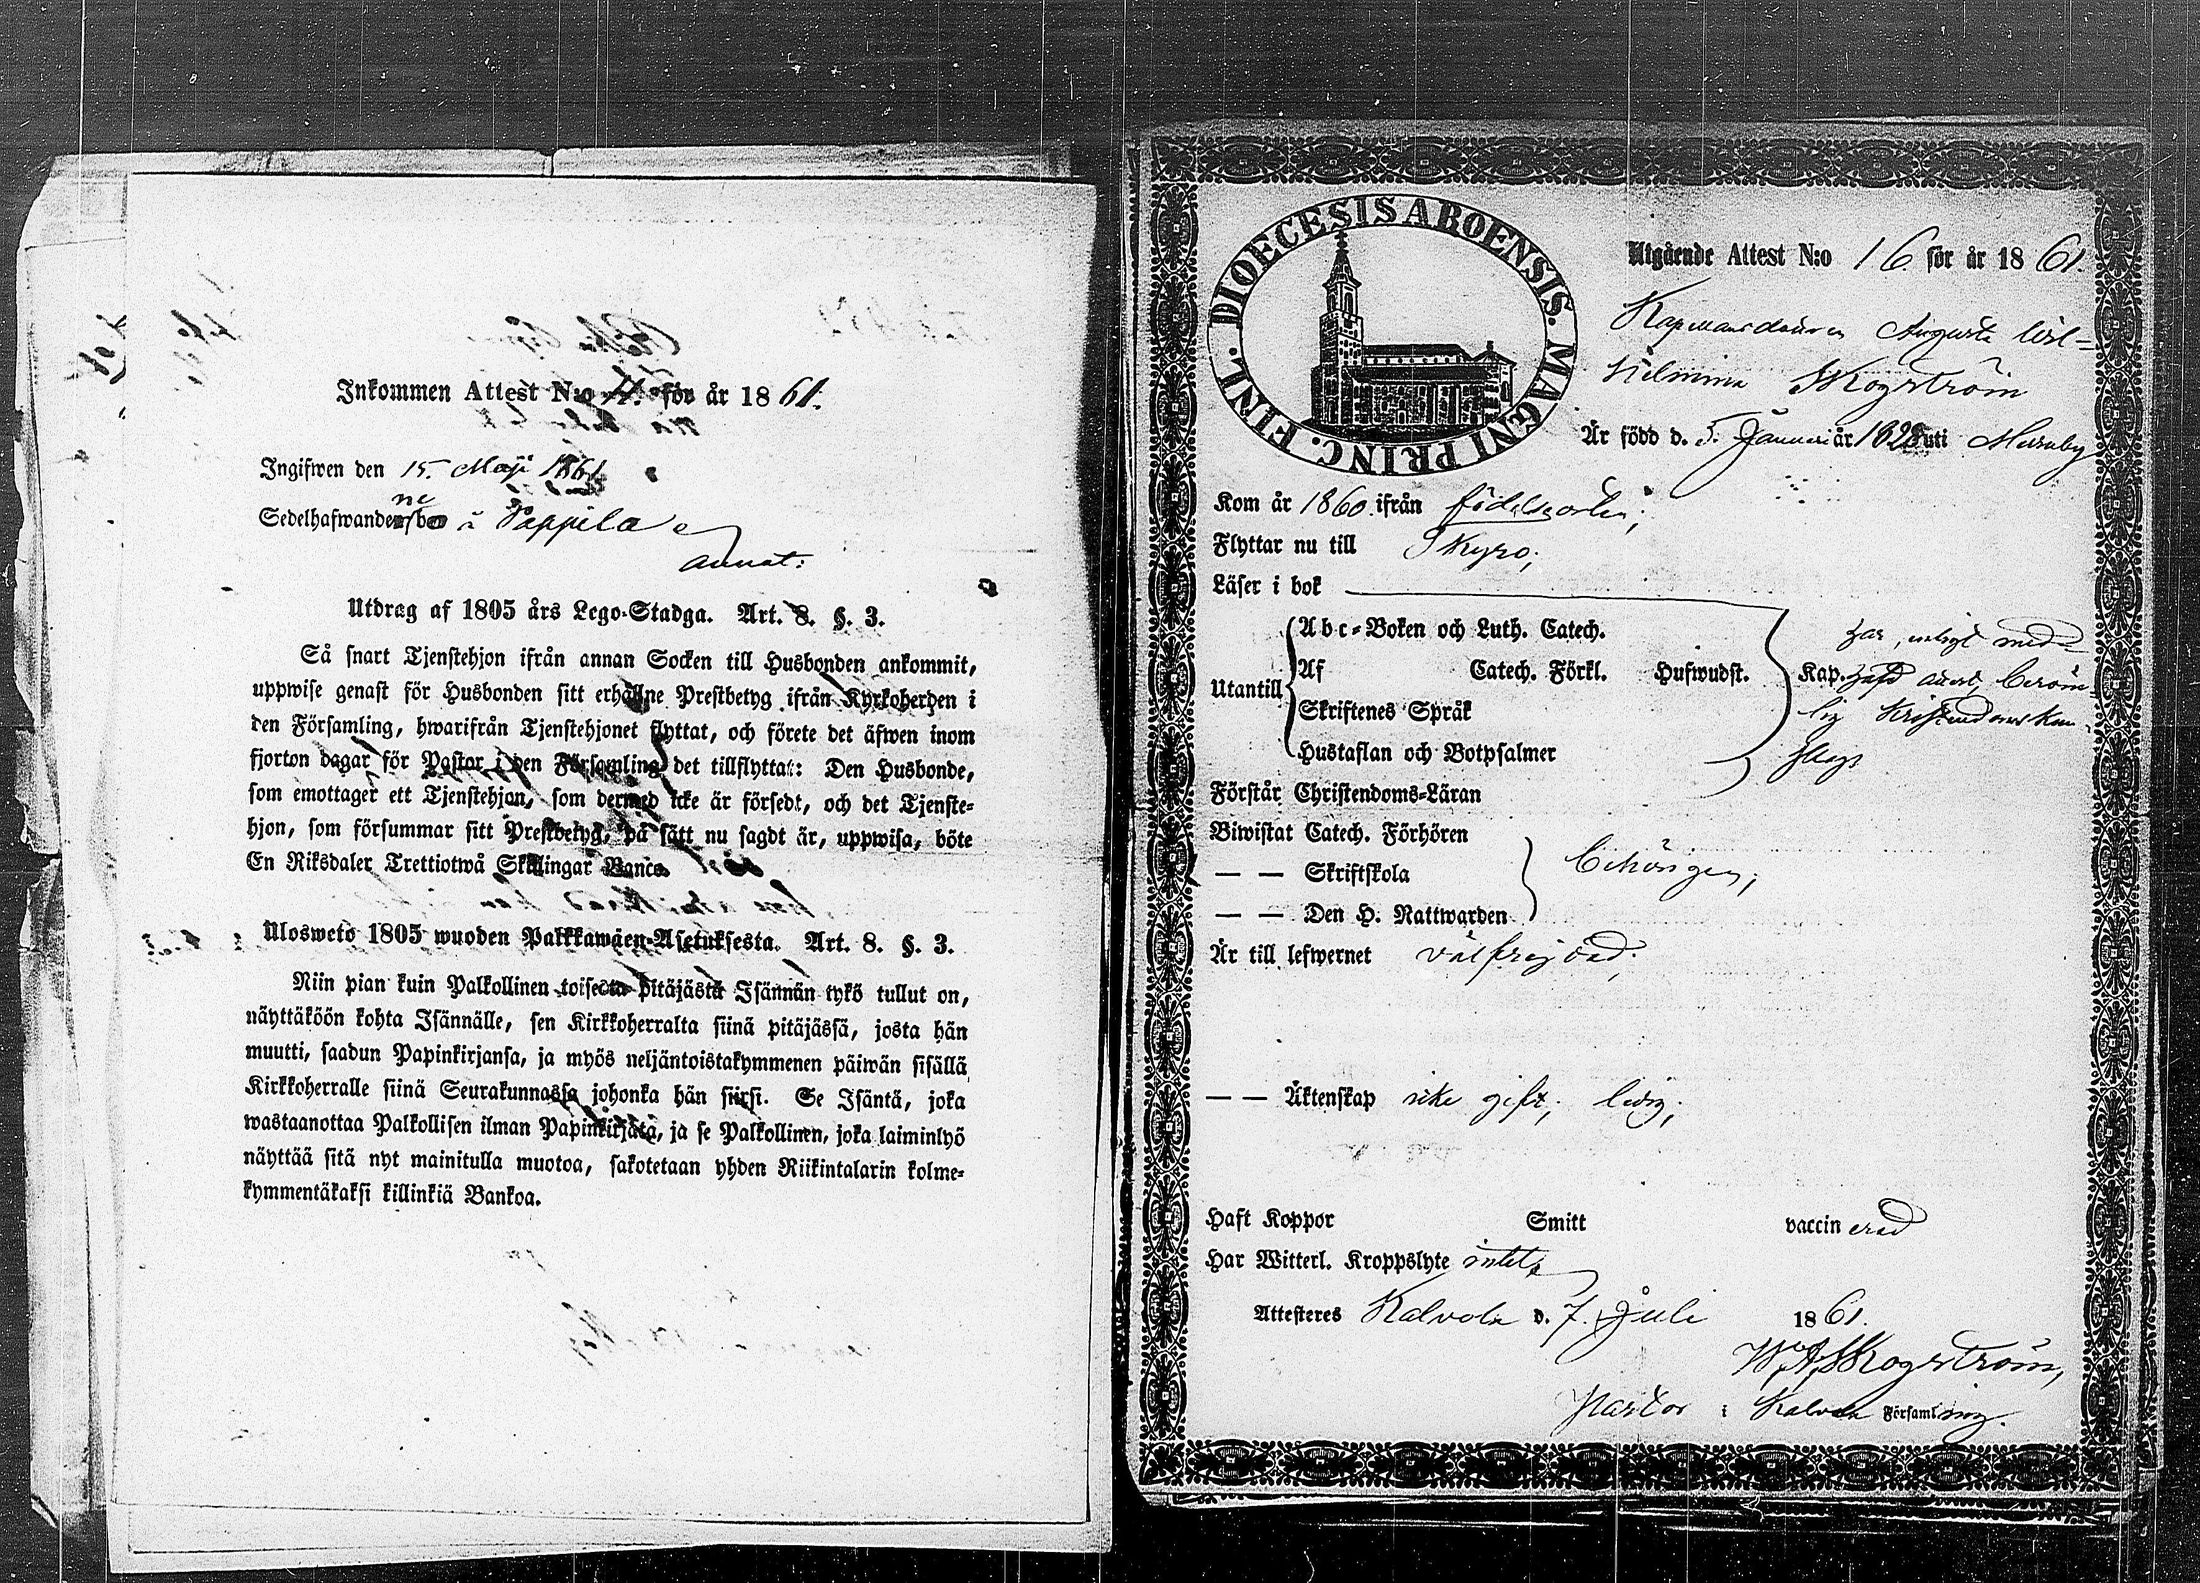 Inkommen Attest N:o 4. för år 1861.
Ingifwen den 15. Maji 1861
Sedelhafwande
ne
å Pappila
annat:
Utdrag af 1805 års Lego-Stadga. Art. 8. §. 3.
Så snart Tjenstehjon ifrån annan Socken till Husbonden ankommit,
uppwise genast för Husbonden sitt erhållne Prestbetyg ifrån Kyrkoherden i
den Församling, hwarifrån Tjenstehjonet flyttat, och förete det äfwen inom
fjorton dagar för Pastor i den Församling det tillflyttat: Den Husbonde,
som emottager ett Tjenstehjon, som dermed icke är försedt, och det Tjenste-
hjon, som försummar sitt Prestbetyg, på sätt nu sagdt är, uppwisa, böte
En Riksdaler Trettiotwå Skillingar Banco.
Ulosweto 1805 wuoden Palkkawäen-Asetuksesta. Art. 8. §. 3.
Niin pian kuin Palkollinen toisesta pitäjästä Isännän tykö tullut on,
näyttäköön kohta Isännälle, sen Kirkkoherralta siinä pitäjässä, josta hän
muutti, saadun Papinkirjansa, ja myös neljäntoistakymmenen päiwän sisällä
Kirkkoherralle siinä Seurakunnassa johonka hän siirsi. Se Isäntä, joka
wastaanottaa Palkollisen ilman Papinkirjata, ja se Palkollinen, joka laiminlyö
näyttää sitä nyt mainitulla muotoa, sakotetaan yhden Riikintalarin kolme-
kymmentäkaksi killinkiä Bankoa.
DIOECESIS ABOENSIS. MAGNI PRINC. FINL.
Utgående Attest N:o 16 för år 1861.
Augusta Wil-
helmina Skogström
Är född d. 5. Januari år uti
Kom år 1860 ifrån födelseorten;
Flyttar nu till Skyro;
Läser i bok
Utantill
Abc-Boken och Luth. Catech.
Af Catech. Förkl. Hufwudst. Kap.
Skriftenes Språk
Hustaflan och Botpsalmer
har, enligt med-
beröm-
lig Kristendomskun-
skap
Förstår Christendoms-Läran
Biwistat Catech. Förhören
— — Skriftskola
— — Den H. Nattwarden
behörigen;
Är till lefwernet välfrejdad;
— — Äktenskap icke gift; ledig;
Haft Koppor Smitt vaccinerad
Har Witterl. Kroppslyte intet,
Attesteres Kalvola d. 7. Juli 1861.
Skogström,
Pastor i Kalvola Församling.